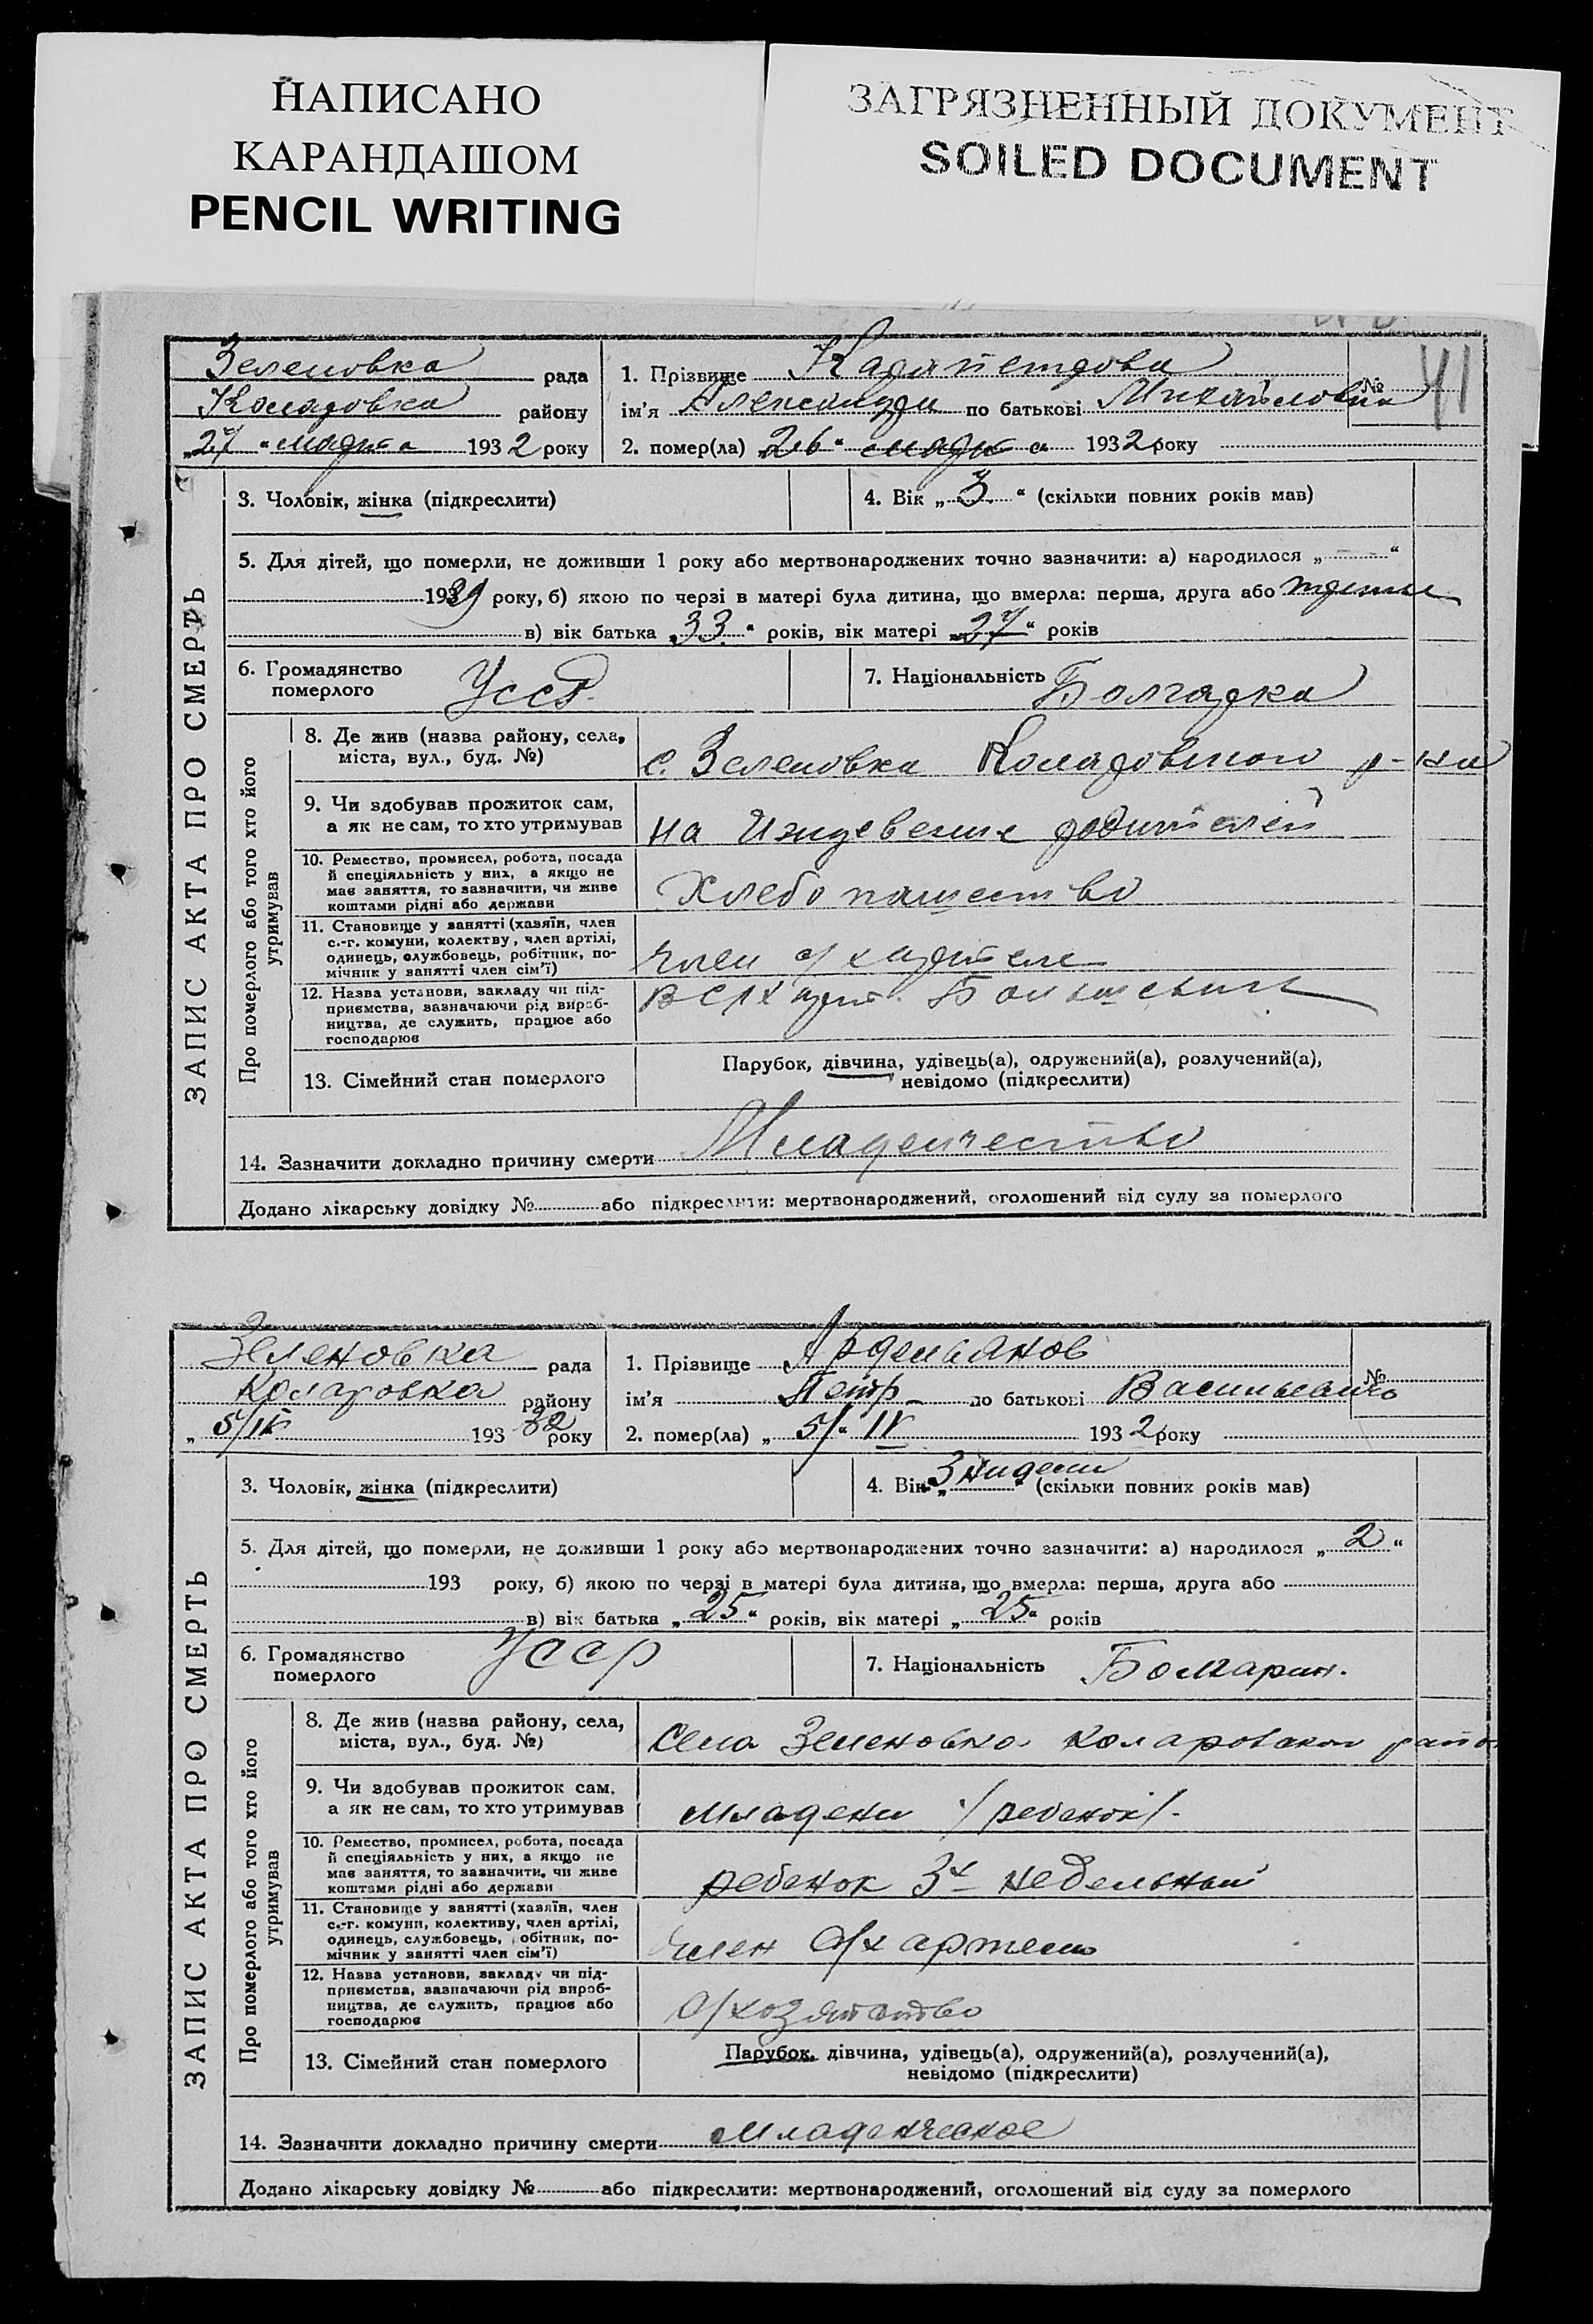 НАПИСАНО
КАРАНДАШОМ
PENCIL WRITING
ЗАГРЯЗНЕННЫЙ ДОКУМЕНТ
SOILED DOCUMENT
Зеленовка рада
Коларовка району
„27“ марта 1932 року
1. Прізвище Карапетрова
ім'я Александра по батькові Михайловна
2. помер(ла) „26“ марта 1932 року
№ 41
ЗАПИС АКТА ПРО СМЕРТЬ
3. Чоловік, жінка (підкреслити)
4. Вік „3“ (скільки повних років мав)
5. Для дітей, що померли, не доживши 1 року або мертвонароджених точно зазначити: а) народилося „ — “
1929 року, б) якою по черзі в матері була дитина, що вмерла: перша, друга або третье
в) вік батька „33“ років, вік матері „27“ років
6. Громадянство померлого УССР
7. Національність Болгарка
Про померлого або того хто його утримував
8. Де жив (назва району, села, міста, вул., буд. №)
с. Зеленовка Коларовского р-на
9. Чи здобував прожиток сам, а як не сам, то хто утримував
на Иждевение родителей
10. Ремество, промисел, робота, посада й спеціяльність у них, а якщо не має заняття, то зазначити, чи живе коштами рідні або держави
Хлебопашество
11. Становище у занятті (хазяїн, член с.-г. комуни, колективу, член артілі, одинець, службовець, робітник, помічник у занятті член сім'ї)
член с/х артели
12. Назва установи, закладу чи підприємства, зазначаючи рід виробництва, де служить, працює або господарює
в с/х арт. Большевик
13. Сімейний стан померлого
Парубок, дівчина, удівець(а), одружений(а), розлучений(а),
невідомо (підкреслити)
14. Зазначити докладно причину смерти Младенчество
Додано лікарську довідку № або підкреслити: мертвонароджений, оголошений від суду за померлого
Зеленовка рада
Коларовка району
„ 5/IV 1932 року
1. Прізвище Ардельянов
ім'я Петр по батькові Васильевич
2. помер(ла) „ 5/“ IV 1932 року
№
ЗАПИС АКТА ПРО СМЕРТЬ
3. Чоловік, жінка (підкреслити)
4. Вік „3 недели“ (скільки повних років мав)
5. Для дітей, що померли, не доживши 1 року або мертвонароджених точно зазначити: а) народилося „2“
193 року, б) якою по черзі в матері була дитина, що вмерла: перша, друга або
в) вік батька „25“ років, вік матері „25“ років
6. Громадянство померлого УССР
7. Національність Болгарин.
Про померлого або того хто його утримував
8. Де жив (назва району, села, міста, вул., буд. №)
села Зеленовка Коларовском
9. Чи здобував прожиток сам, а як не сам, то хто утримував
младени /ребенок/.
10. Ремество, промисел, робота, посада й спеціяльність у них, а якщо не має заняття, то зазначити, чи живе коштами рідні або держави
ребенок 3х недельный
11. Становище у занятті (хазяїн, член с.-г. комуни, колективу, член артілі, одинець, службовець, робітник, помічник у занятті член сім'ї)
член с/х артели
12. Назва установи, закладу чи підприємства, зазначаючи рід виробництва, де служить, працює або господарює
с/хозяйство
13. Сімейний стан померлого
Парубок, дівчина, удівець(а), одружений(а), розлучений(а),
невідомо (підкреслити)
14. Зазначити докладно причину смерти Младенческое
Додано лікарську довідку № або підкреслити: мертвонароджений, оголошений від суду за померлого